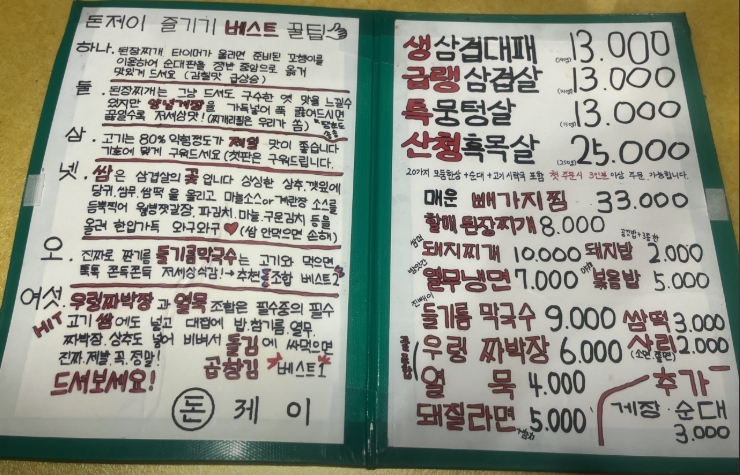 돈제이 즐기기 베스트 꿀팁
하나. 된장찌개 타이머가 울리면 준비된 꼬챙이를
이용하여 순대판을 정반 중앙으로 옮겨
맛있게 드셔요 (김칠맛 급상승)
둘. 된장찌개는 그냥 드셔도 구수한 옛 맛을 느낄수
있지만 양념게장을 가득넣어 푹 끓여드시면
끓일수록 저세상맛! (찌개리필은 우리가 쏨)
삼. 고기는 80% 익힘정도가 제일 맛이 좋습니다
기호에 맞게 구워드셔요 (첫판은 구워드립니다.
넷. 쌈은 삼겹살의 꽃입니다 싱싱한 상추.깻잎에
당귀.쌈무.쌈떡을 올리고 마늘소스or계란장 소스를
듬뿍찍어 월병쯧갈장.파김치.마늘.구운김치 등을
올려 한입가득 와구와구♥ (쌈 안먹으면 손해)
오. 진짜로 짠기름 들기름막국수는 고기와 먹으면
톡톡 쫀득쫀득 저세상식감! → 추천 조합 베스트2
여섯. 우렁짜박장과 열묵 조합은 필수중의 필수
HIT 고기 쌈에도 넣고 대접에 밥.참기름.열무.
짜박장.상추도 넣어 비벼서 돌김에 싸먹으면
진짜.제발.꼭.정말! 곱창김 베스트1
드셔보세요!
돈 제 이
생삼겹대패 13.000
급랭 삼겹살 13.000
특 뭉텅살 13.000
산청흑목살 25.000
20가지 모둠한상 +순대 +고기 시락국 포함 첫 주문시 3인분 이상 주문 가능합니다.
매운 빼가지찜 33.000
할매 된장찌개 8.000
돼지찌개 10.000 돼지밥 2.000
열무냉면 7.000 볶음밥 5.000
들기름 막국수 9.000 쌈떡 3.000
우렁 짜박장 6.000 사리 2.000
열 묵 4.000 추가
돼질라면 5.000 게장·순대
3.000